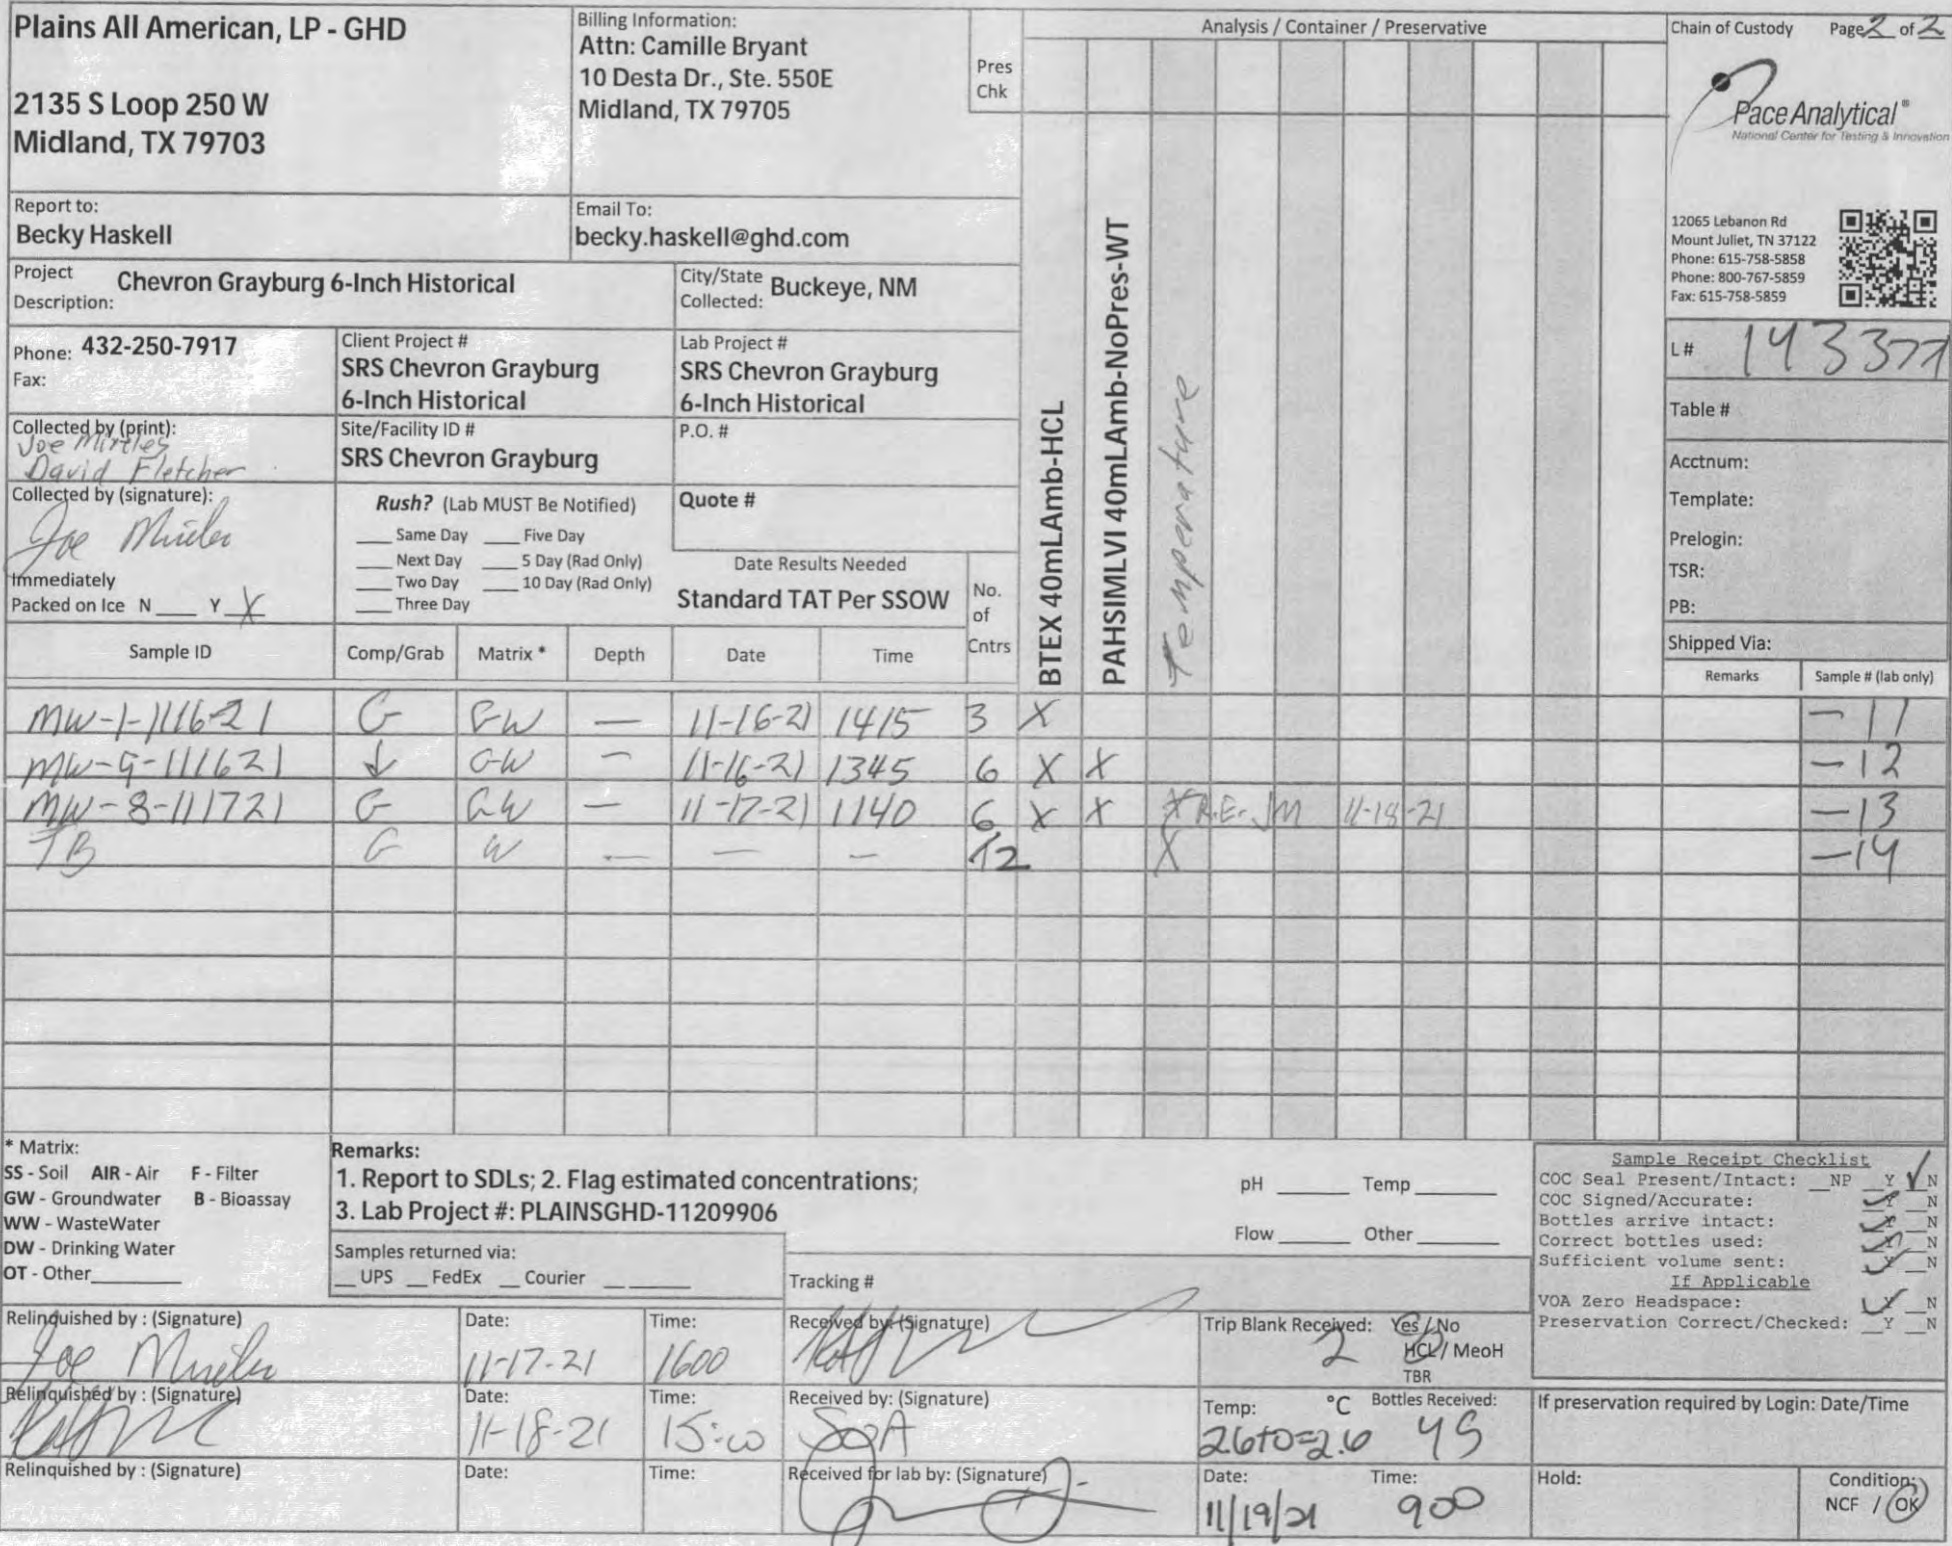 Plains All American, LP - GHD
2135 S Loop 250 W
Midland, TX 79703
Billing Information:
Attn: Camille Bryant
10 Desta Dr., Ste. 550E
Midland, TX 79705
Pres
Chk
Analysis / Container / Preservative
Chain of Custody Page 2 of 2
Pace Analytical®
National Center for Testing & Innovation
12065 Lebanon Rd
Mount Juliet, TN 37122
Phone: 615-758-5858
Phone: 800-767-5859
Fax: 615-758-5859
Report to:
Becky Haskell
Email To:
becky.haskell@ghd.com
Project
Description: Chevron Grayburg 6-Inch Historical
City/State
Collected: Buckeye, NM
Phone: 432-250-7917
Fax:
Client Project #
SRS Chevron Grayburg
6-Inch Historical
Lab Project #
SRS Chevron Grayburg
6-Inch Historical
Collected by (print):
Joe Mirtles
David Fletcher
Site/Facility ID #
SRS Chevron Grayburg
P.O. #
Collected by (signature):
Immediately
Packed on Ice N ___ Y X
Rush? (Lab MUST Be Notified)
___ Same Day ___ Five Day
___ Next Day ___ 5 Day (Rad Only)
___ Two Day ___ 10 Day (Rad Only)
___ Three Day
Quote #
Date Results Needed
Standard TAT Per SSOW
No.
of
Cntrs
BTEX 40mLAmb-HCL
PAHSIMLVI 40mLAmb-NoPres-WT
Temperature
L # 143377
Table #
Acctnum:
Template:
Prelogin:
TSR:
PB:
Shipped Via:
Remarks Sample # (lab only)
Sample ID Comp/Grab Matrix * Depth Date Time
MW-1-111621 G GW — 11-16-21 1415 3 X -11
MW-9-111621 ↓ GW — 11-16-21 1345 6 X X -12
MW-8-111721 G GW — 11-17-21 1140 6 X X X R.E. JM 11-18-21 -13
TB G W — — — 12 X -14
* Matrix:
SS - Soil AIR - Air F - Filter
GW - Groundwater B - Bioassay
WW - WasteWater
DW - Drinking Water
OT - Other
Remarks:
1. Report to SDLs; 2. Flag estimated concentrations;
3. Lab Project #: PLAINSGHD-11209906
Samples returned via:
__ UPS __ FedEx __ Courier
pH ___ Temp ___
Flow ___ Other ___
Tracking #
Sample Receipt Checklist
COC Seal Present/Intact: __NP __Y ✓N
COC Signed/Accurate: ✓Y __N
Bottles arrive intact: ✓Y __N
Correct bottles used: ✓Y __N
Sufficient volume sent: ✓Y __N
If Applicable
VOA Zero Headspace: ✓Y __N
Preservation Correct/Checked: __Y __N
Relinquished by : (Signature)
Date:
11-17-21
Time:
1600
Received by: (Signature)
Trip Blank Received: Yes / No
2 HCL / MeoH
TBR
Relinquished by : (Signature)
Date:
11-18-21
Time:
15:00
Received by: (Signature)
Temp: °C Bottles Received:
2.6+0=2.6 45
If preservation required by Login: Date/Time
Relinquished by : (Signature)
Date:
Time:
Received for lab by: (Signature)
Date:
11/19/21
Time:
900
Hold:
Condition:
NCF / OK